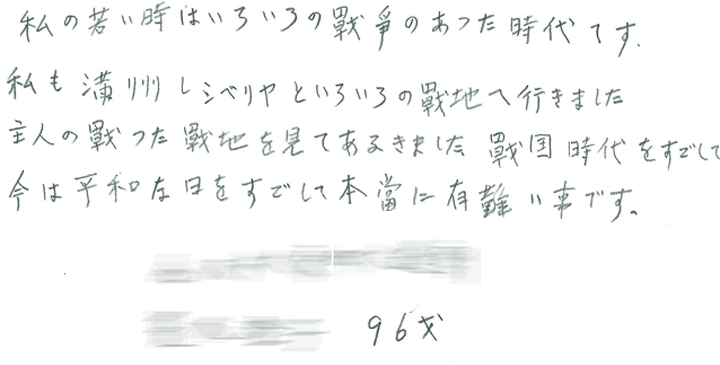 私の若い時はいろいろの戰爭のあった時代です.
私も満州シベリヤといろいろの戰地へ行きました
主人の戰った戰地を見てあるきました 戰国時代をすごして
今は平和な日をすごして本當に有難い事です。
96才